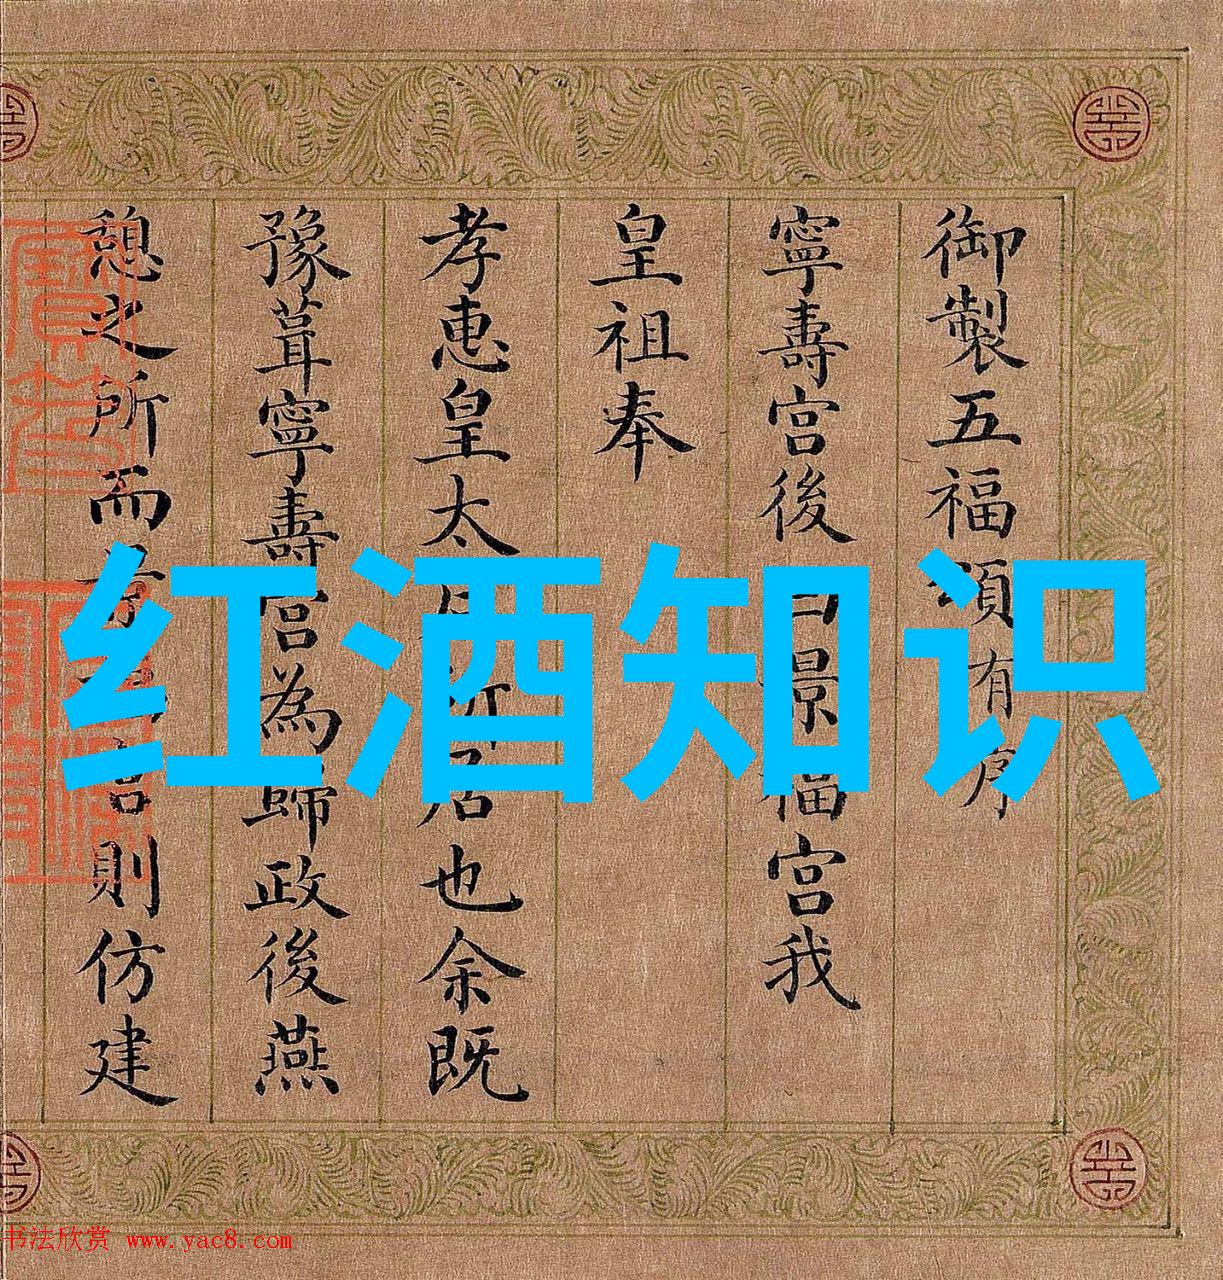 御製五福頌有序
寧壽宮後曰景福宮我
皇祖奉
孝惠皇太后所居也余既
豫葺寧壽宮為歸政後燕
憩之所而景福宮則仿建
红酒知识
书法欣赏 www.yac8.com